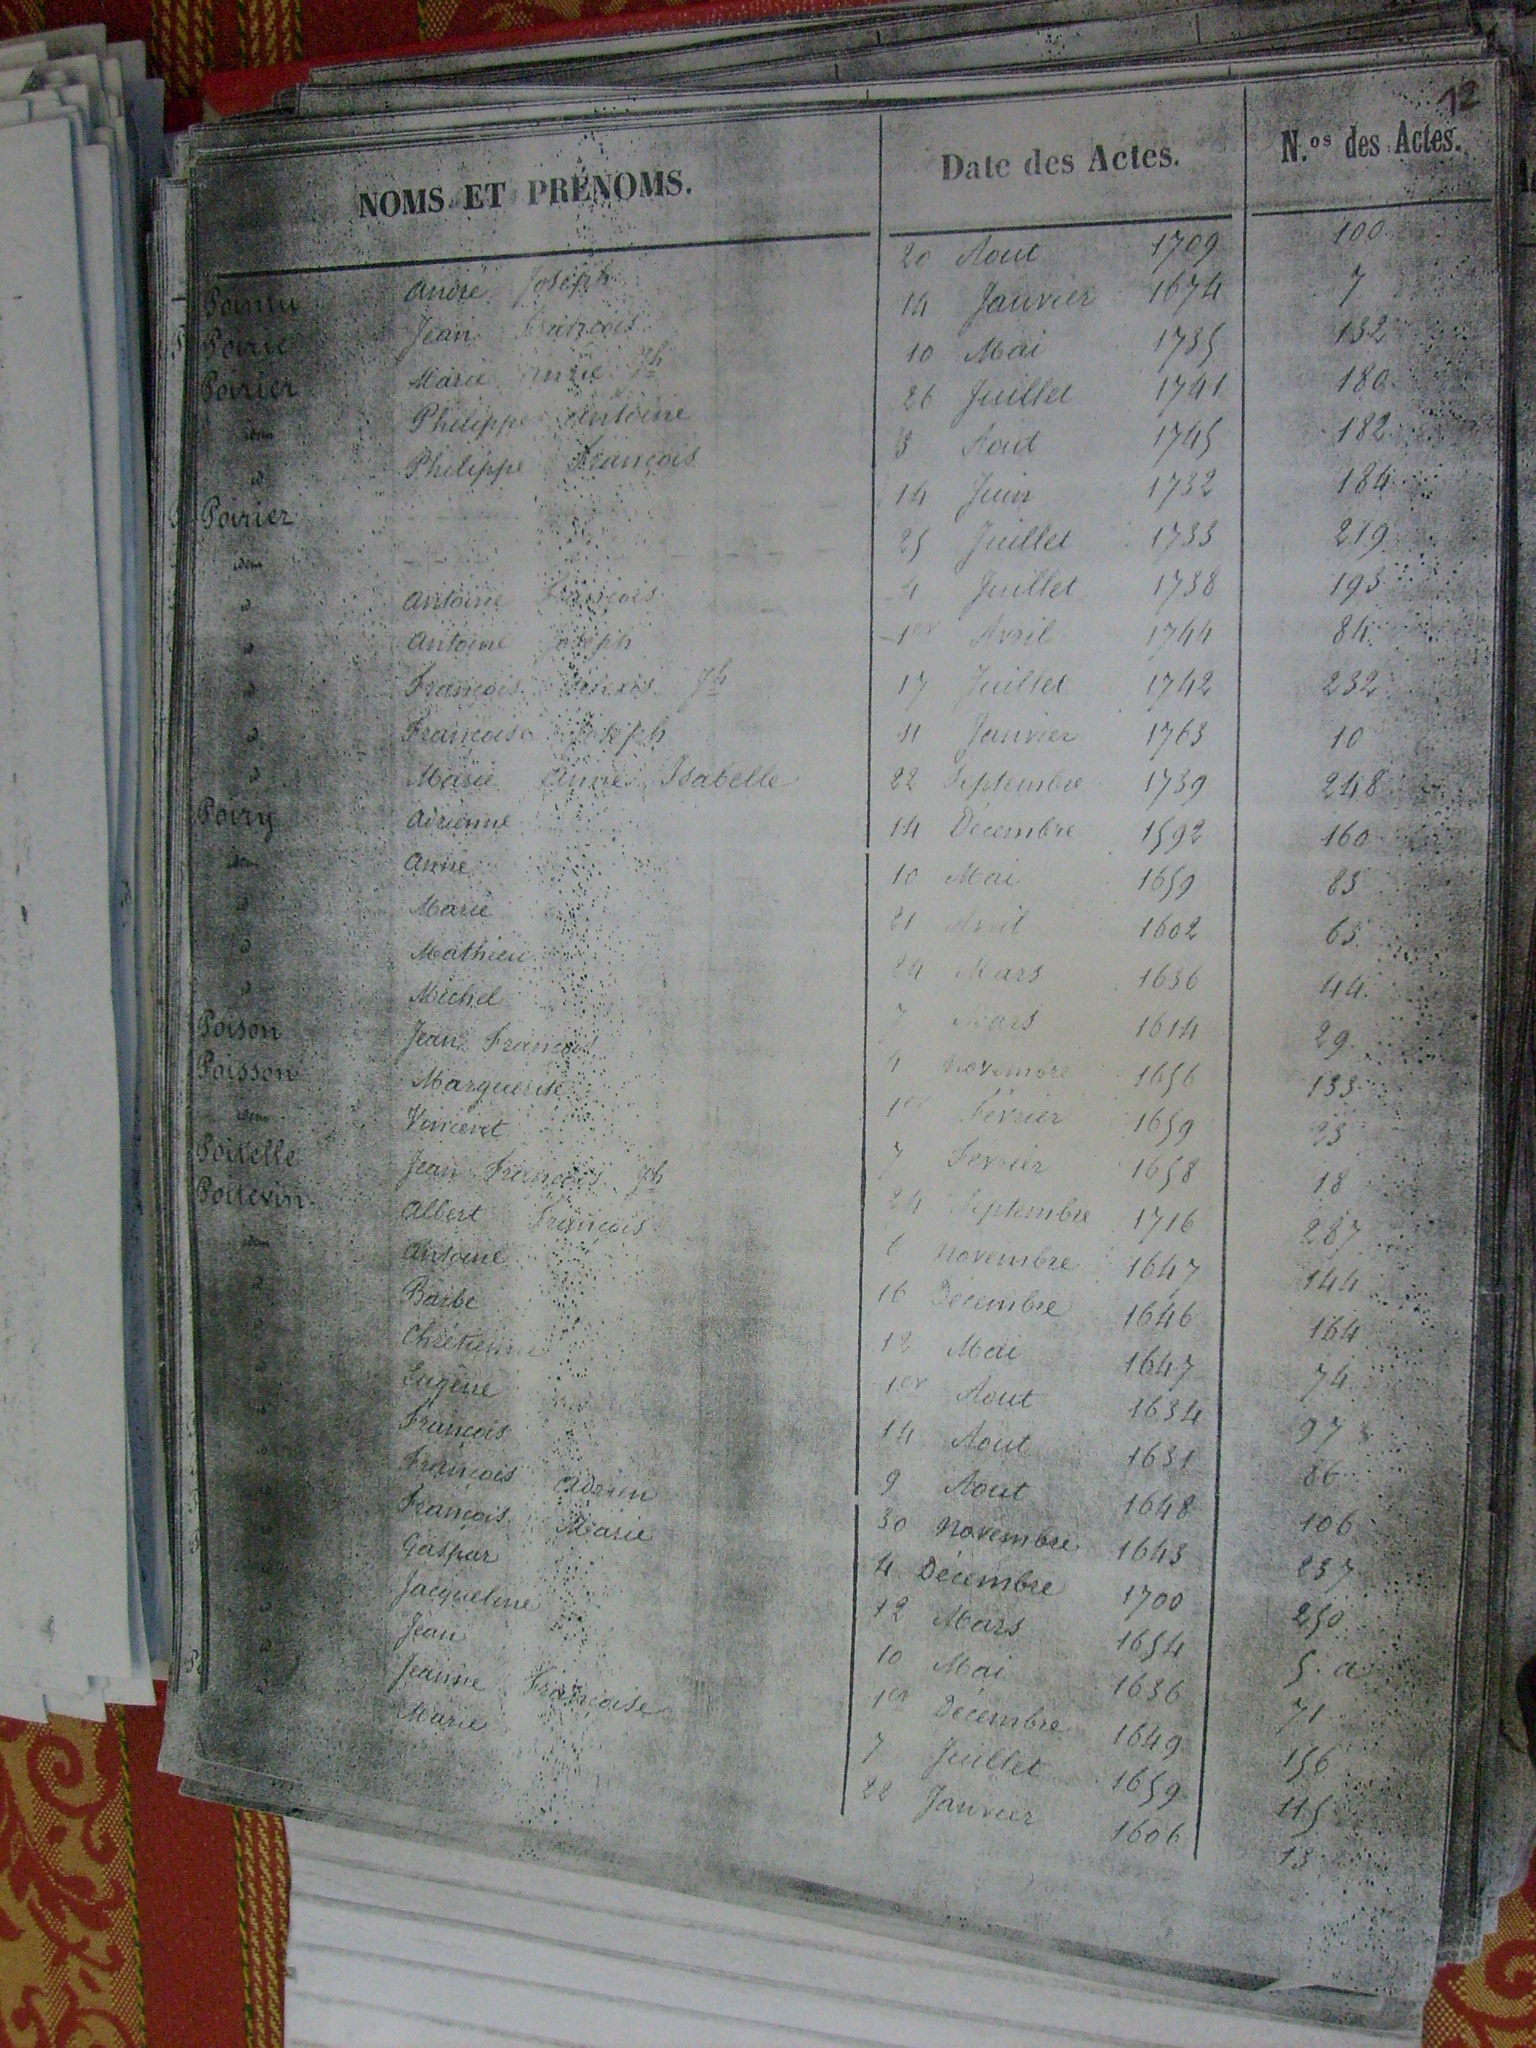 12
NOMS ET PRÉNOMS. Date des Actes. N.os des Actes.
André Joseph 20 Aout 1709 100
Poirie Jean François 14 Janvier 1674 7
Poirier Marie Anne Jh 10 Mai 1735 132
idem Philippe Antoine 26 Juillet 1741 180
id Philippe François 3 Aout 1745 182
Poirier 14 Juin 1732 184
idem 25 Juillet 1733 219
id Antoine François 4 Juillet 1738 193
id Antoine Joseph 1er Avril 1744 84
id François Alexis Jh 17 Juillet 1742 232
id Françoise Joseph 11 Janvier 1763 10
id Marie Anne Isabelle 22 Septembre 1739 248
Poiry Adrienne 14 Décembre 1592 160
idem Anne 10 Mai 1659 83
id Marie 21 Avril 1602 63
id Mathieu 24 Mars 1636 44
id Michel 7 Mars 1614 29
Poison Jean François 4 Novembre 1656 133
Poisson Marguerite 1er Février 1659 23
idem Vincent 7 Fevrier 1658 18
Poitelle Jean François Jh 24 Septembre 1716 287
Poitevin Albert François 6 novembre 1647 144
idem Antoine 16 Décembre 1646 164
id Barbe 12 Mai 1647 74
id Chretienne 1er Aout 1634 97
id Eugène 14 Aout 1631 86
id François 9 Aout 1648 106
id François Adrien 30 novembre 1643 237
id François Marie 4 Décembre 1700 250
id Gaspar 12 Mars 1654 5 a
id Jacqueline 10 Mai 1636 71
id Jean 1er Décembre 1649 156
id Jeanne Françoise 7 Juillet 1659 115
id Marie 22 Janvier 1606 13